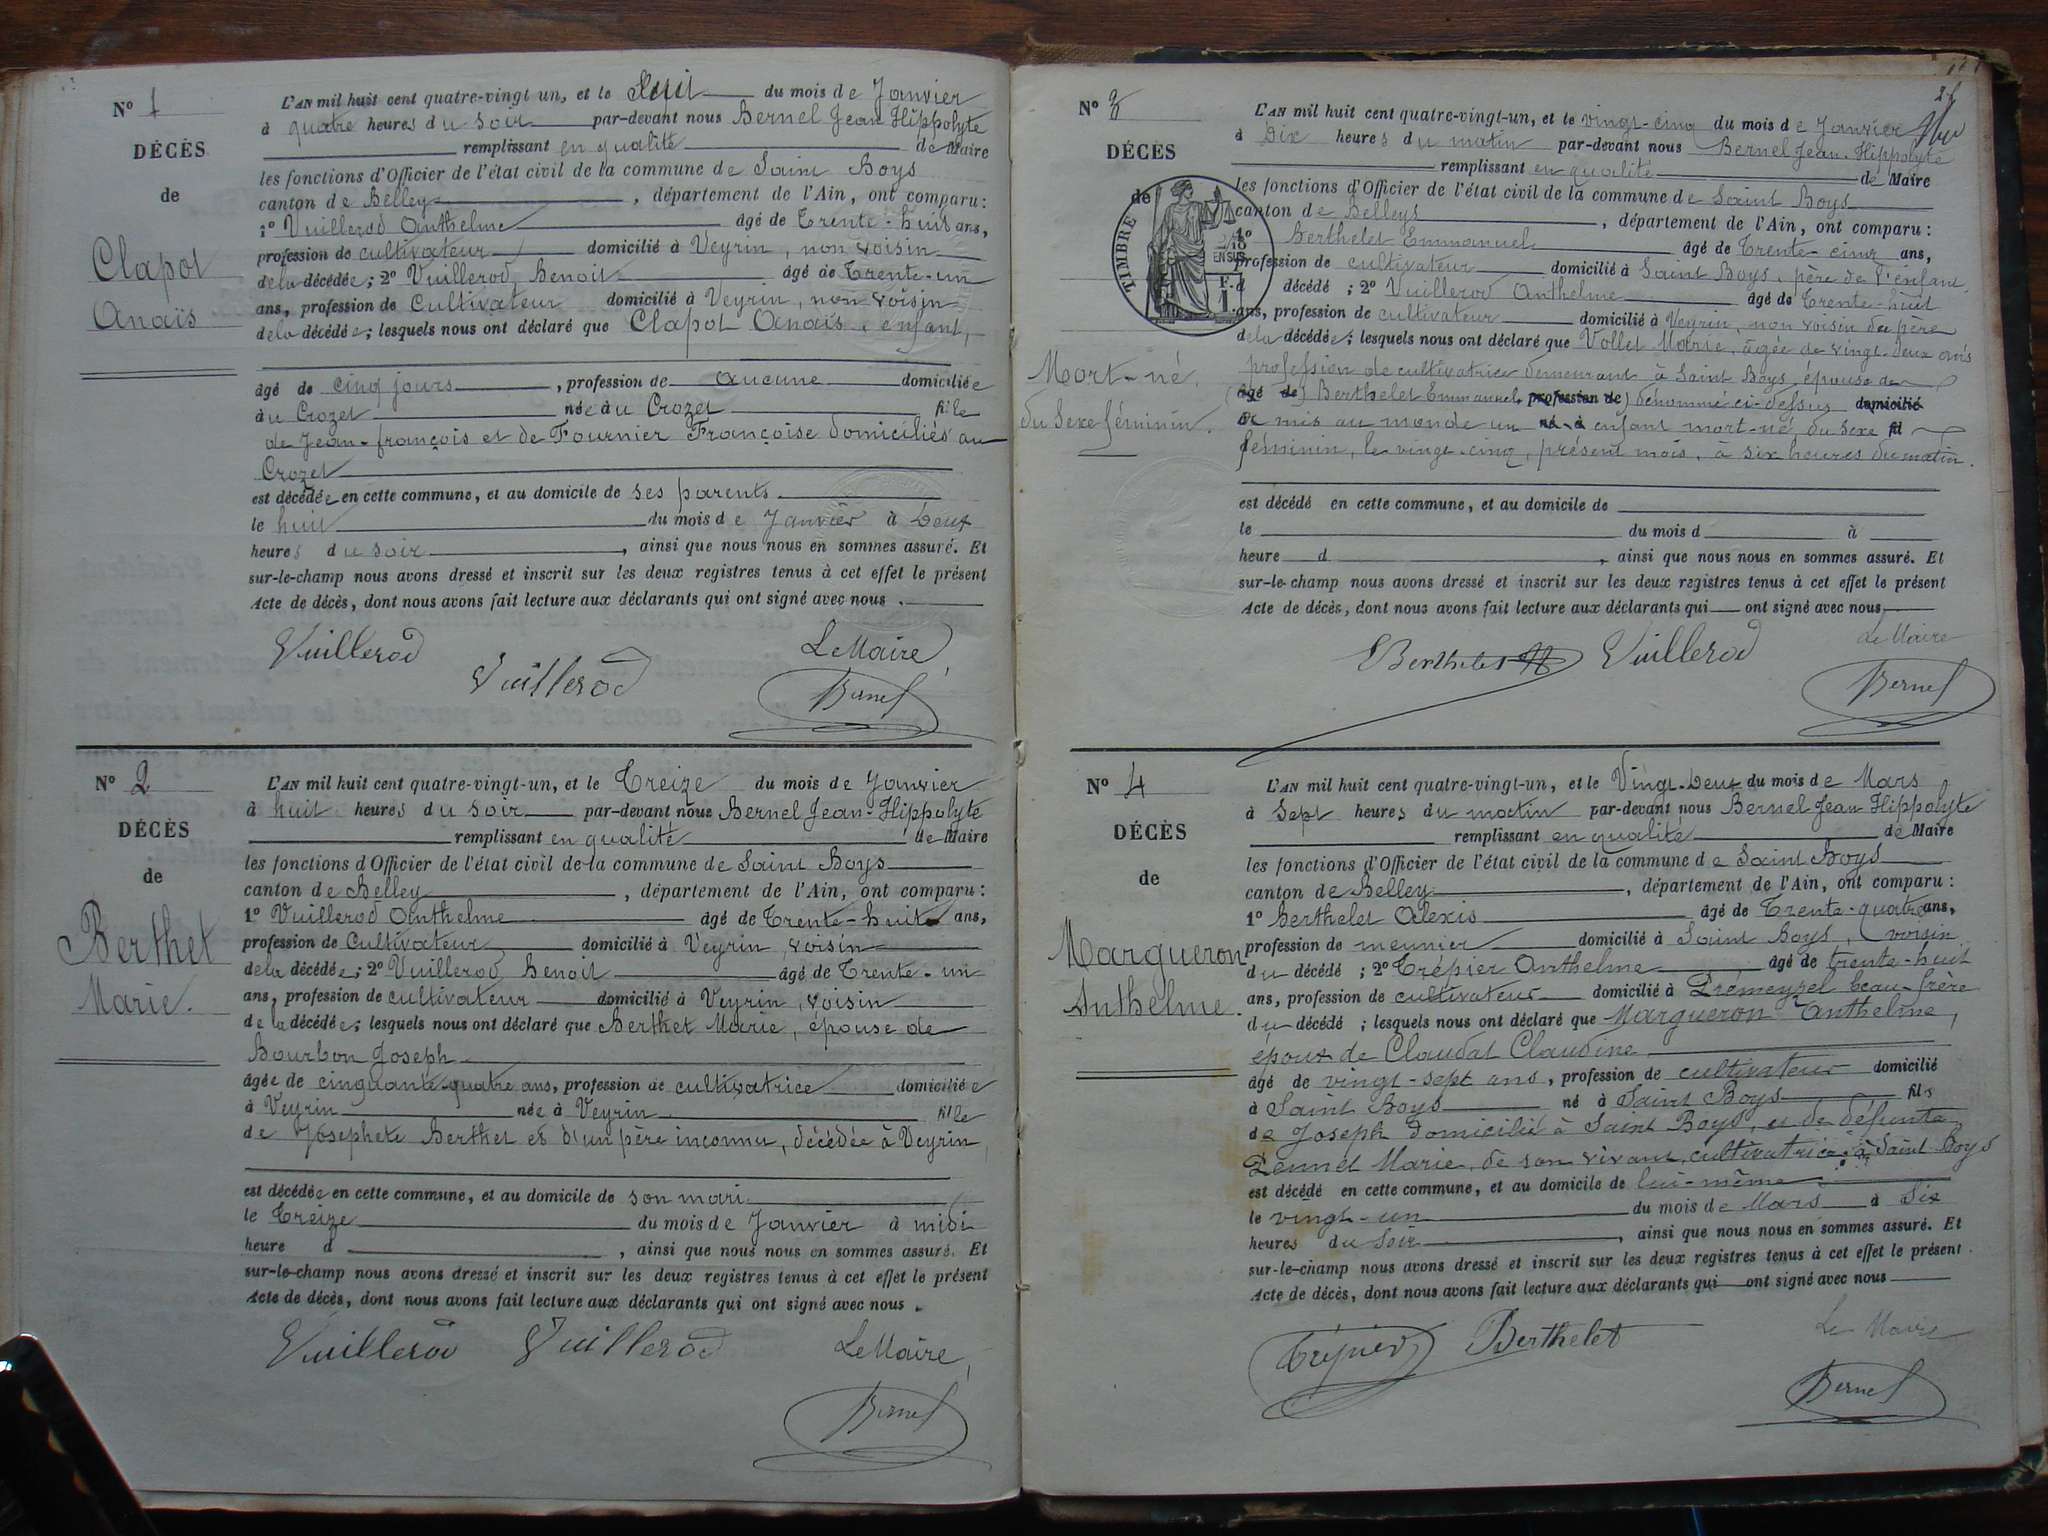 N° 1
DÉCÈS
de
Clapot
Anaïs
L'AN mil huit cent quatre-vingt un, et le huit du mois de Janvier
à quatre heures du soir par-devant nous Bernel Jean Hippolyte
remplissant en qualité de Maire
les fonctions d'Officier de l'état civil de la commune de Saint Boys
canton de Belley, département de l'Ain, ont comparu :
1° Vuillerod Anthelme âgé de Trente-huit ans,
profession de cultivateur domicilié à Veyrin, non voisin
de la décédée ; 2° Vuillerod Benoit âgé de Trente-un
ans, profession de Cultivateur domicilié à Veyrin, non voisin
de la décédée ; lesquels nous ont déclaré que Clapot Anaïs, enfant,
âgé de cinq jours, profession de aucune domiciliée
à u Crozet née à u Crozet fille
de Jean-françois et de Fournier Françoise domiciliés au
Crozet
est décédée en cette commune, et au domicile de ses parents
le huit du mois de Janvier à Deux
heures du soir, ainsi que nous nous en sommes assuré. Et
sur-le-champ nous avons dressé et inscrit sur les deux registres tenus à cet effet le présent
Acte de décès, dont nous avons fait lecture aux déclarants qui ont signé avec nous.
Vuillerod
Vuillerod
Le Maire,
Bernel
N° 2
DÉCÈS
de
Berthet
Marie.
L'AN mil huit cent quatre-vingt-un, et le Treize du mois de Janvier
à huit heures du soir par-devant nous Bernel Jean-Hippolyte
remplissant en qualité de Maire
les fonctions d'Officier de l'état civil de la commune de Saint Boys
canton de Belley, département de l'Ain, ont comparu :
1° Vuillerod Anthelme âgé de Trente-huit ans,
profession de Cultivateur domicilié à Veyrin, voisin
de la décédée ; 2° Vuillerod Benoit âgé de Trente-un
ans, profession de cultivateur domicilié à Veyrin, voisin
de la décédée ; lesquels nous ont déclaré que Berthet Marie, épouse de
Bourbon Joseph
âgée de cinquante-quatre ans, profession de cultivatrice domiciliée
à Veyrin née à Veyrin fille
de Josephete Berthet et d'un père inconnu, décédée à Veyrin,
est décédée en cette commune, et au domicile de son mari
le Treize du mois de Janvier à midi
heure d, ainsi que nous nous en sommes assuré. Et
sur-le-champ nous avons dressé et inscrit sur les deux registres tenus à cet effet le présent
Acte de décès, dont nous avons fait lecture aux déclarants qui ont signé avec nous.
Vuillerod Vuillerod Le Maire,
Bernel
N° 3
DÉCÈS
de
TIMBRE
Mort-né,
du Sexe féminin.
L'AN mil huit cent quatre-vingt-un, et le vingt-cinq du mois de Janvier
à Dix heures du matin par-devant nous Bernel Jean-Hippolyte
remplissant en qualité de Maire
les fonctions d'Officier de l'état civil de la commune de Saint Boys
canton de Belleys, département de l'Ain, ont comparu :
1° Berthelet Emmanuel âgé de Trente-cinq ans,
profession de cultivateur domicilié à Saint Boys, père de l'enfant
décédé ; 2° Vuillerod Anthelme âgé de Trente-huit
ans, profession de cultivateur domicilié à Veyrin, non voisin du père
de la décédée ; lesquels nous ont déclaré que Vollet Marie, âgée de vingt-deux ans
profession de cultivatrice demeurant à Saint Boys, épouse de
(âgé de) Berthelet Emmanuel, profession de) dénommé ci-dessus domicilié
a mis au monde un né à enfant mort-né du sexe fil
féminin, le vingt-cinq, présent mois, à six heures du matin.
est décédé en cette commune, et au domicile de
le du mois d à
heure d, ainsi que nous nous en sommes assuré. Et
sur-le-champ nous avons dressé et inscrit sur les deux registres tenus à cet effet le présent
Acte de décès, dont nous avons fait lecture aux déclarants qui ont signé avec nous
Berthelet Vuillerod
Le Maire
Bernel
N° 4
DÉCÈS
de
Margueron
Anthelme.
L'AN mil huit cent quatre-vingt-un, et le Vingt-Deux du mois de Mars
à Sept heures du matin par-devant nous Bernel Jean Hippolyte
remplissant en qualité de Maire
les fonctions d'Officier de l'état civil de la commune de Saint Boys
canton de Belley, département de l'Ain, ont comparu :
1° Berthelet Alexis âgé de Trente-quatre ans,
profession de meunier domicilié à Saint Boys, voisin
du décédé ; 2° Trépier Anthelme âgé de trente-huit
ans, profession de cultivateur domicilié à Prémeyzel beau-frère
du décédé ; lesquels nous ont déclaré que Margueron Anthelme,
époux de Claudat Claudine
âgé de vingt-sept ans, profession de cultivateur domicilié
à Saint Boys né à Saint Boys fils
de Joseph domicilié à Saint Boys, et de défunte
Pennet Marie, de son vivant, cultivatrice à Saint Boys
est décédé en cette commune, et au domicile de lui-même
le vingt-un du mois de Mars à Six
heures du Soir, ainsi que nous nous en sommes assuré. Et
sur-le-champ nous avons dressé et inscrit sur les deux registres tenus à cet effet le présent
Acte de décès, dont nous avons fait lecture aux déclarants qui ont signé avec nous
Trépier Berthelet
Le Maire
Bernel